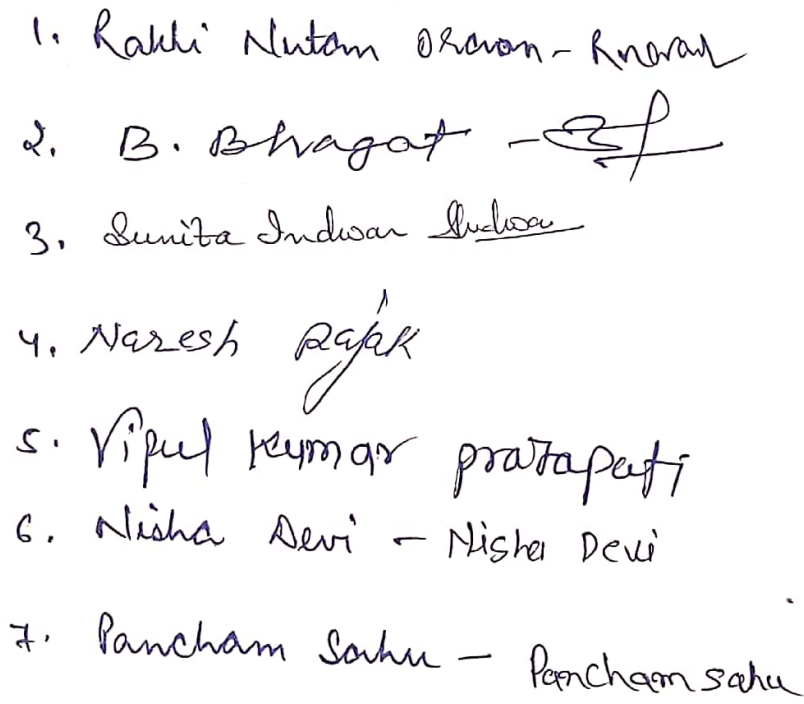 1. Rakhi Nutan Oraon - Rnoraon
2. B. Bhagat -
3. Sunita Indwar Indwar
4. Naresh Rajak
5. Vipul Kumar prajapati
6. Nisha Devi - Nisha Devi
7. Pancham Sahu - Pancham sahu